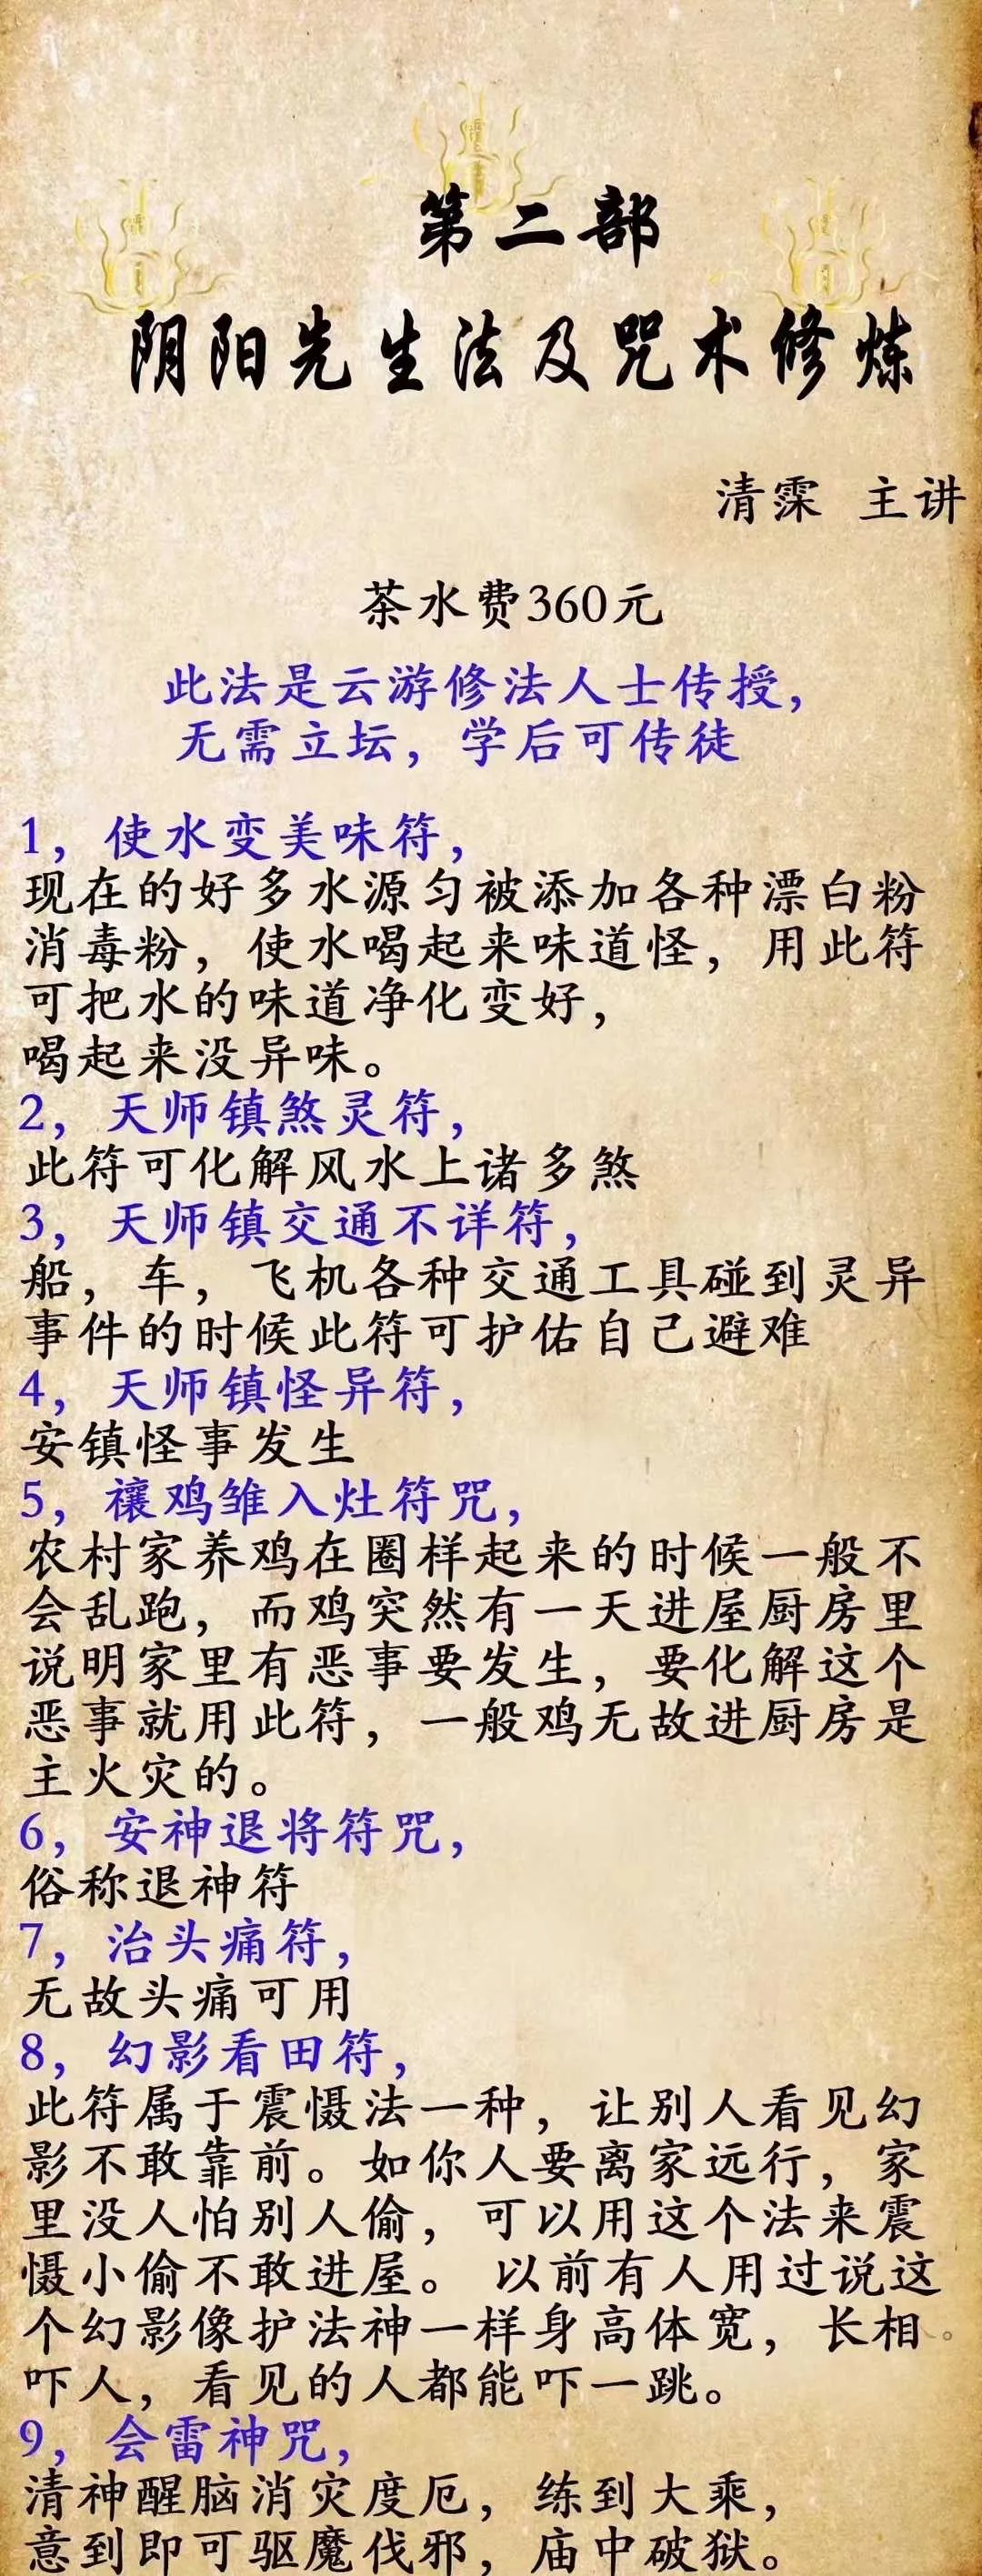 第二部
阴阳先生法及咒术修炼
清霂 主讲
茶水费360元
此法是云游修法人士传授，
无需立坛，学后可传徒
1，使水变美味符，
现在的好多水源匀被添加各种漂白粉
消毒粉，使水喝起来味道怪，用此符
可把水的味道净化变好，
喝起来没异味。
2，天师镇煞灵符，
此符可化解风水上诸多煞
3，天师镇交通不详符，
船，车，飞机各种交通工具碰到灵异
事件的时候此符可护佑自己避难
4，天师镇怪异符，
安镇怪事发生
5，禳鸡雏入灶符咒，
农村家养鸡在圈样起来的时候一般不
会乱跑，而鸡突然有一天进屋厨房里
说明家里有恶事要发生，要化解这个
恶事就用此符，一般鸡无故进厨房是
主火灾的。
6，安神退将符咒，
俗称退神符
7，治头痛符，
无故头痛可用
8，幻影看田符，
此符属于震慑法一种，让别人看见幻
影不敢靠前。如你人要离家远行，家
里没人怕别人偷，可以用这个法来震
慑小偷不敢进屋。 以前有人用过说这
个幻影像护法神一样身高体宽，长相。
吓人，看见的人都能吓一跳。
9，会雷神咒，
清神醒脑消灾度厄，练到大乘，
意到即可驱魔伐邪，庙中破狱。